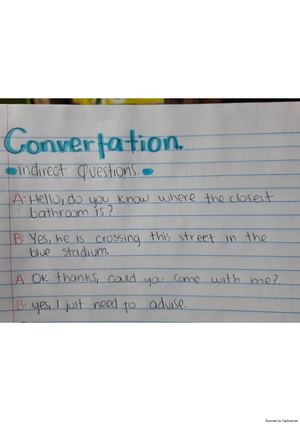 Convertation.
Indirect Questions.
A: Hello, do you know where the closest
bathroom is?
B: Yes, he is crossing this street in the
blue stadium.
A: OK thanks, could you come with me?
B: yes, I just need to advise.
Scanned by TapScanner